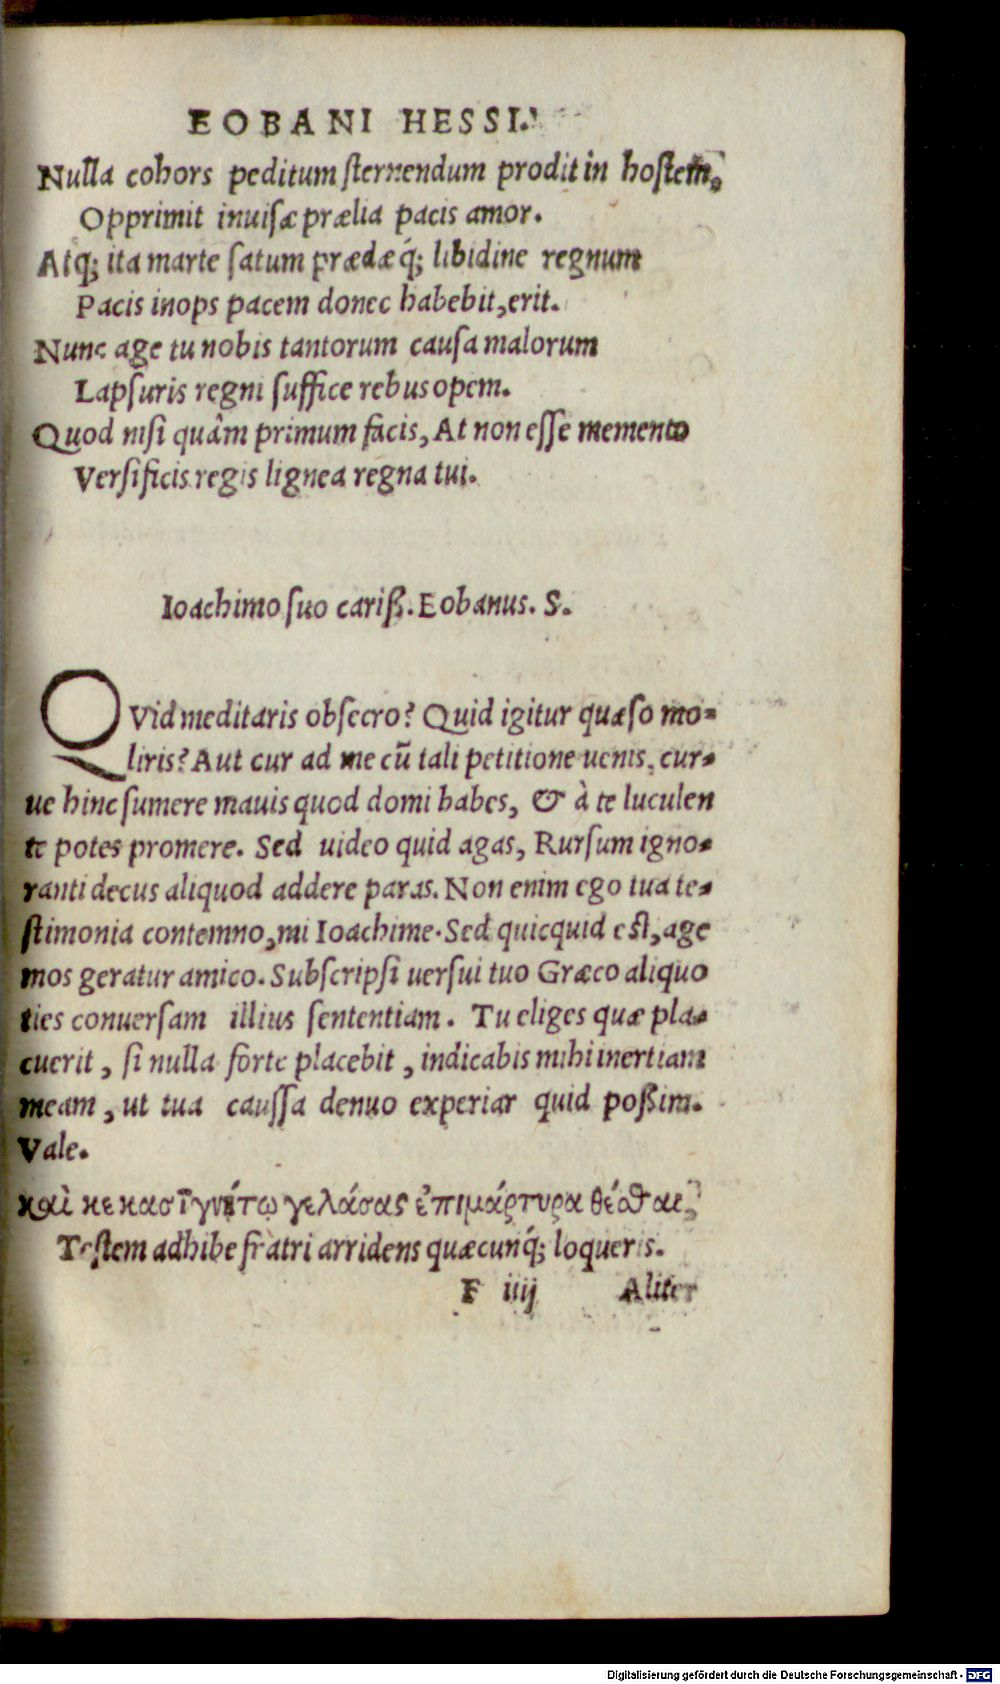 EOBANI HESSI.
Nulla cohors peditum ſternendum prodit in hoſtem,
Opprimit inuiſæ prælia pacis amor.
Atq; ita marte ſatum prædæq́; libidine regnum
Pacis inops pacem donec habebit, erit.
Nunc age tu nobis tantorum cauſa malorum
Lapſuris regni ſuffice rebus opem.
Quod niſi quâm primum facis, At non eſſe memento
Verſificis regis lignea regna tui.
Ioachimo ſuo cariß. Eobanus. S.
QVid meditaris obſecro? Quid igitur quæſo mo-
liris? Aut cur ad me cũ tali petitione uenis, cur-
ue hinc ſumere mauis quod domi habes, & à te luculen
te potes promere. Sed uideo quid agas, Rurſum igno-
ranti decus aliquod addere paras. Non enim ego tua te-
ſtimonia contemno, mi Ioachime. Sed quicquid eſt, age
mos geratur amico. Subſcripſi uerſui tuo Græco aliquo
ties conuerſam illius ſententiam. Tu eliges quæ pla-
cuerit, ſi nulla forte placebit, indicabis mihi inertiam
meam, ut tua cauſſa denuo experiar quid poßim.
Vale.
καὶ κε κασιγνήτῳ γελάσας ἐπιμάρτυρα θέσθαι,
Teſtem adhibe fratri arridens quæcunq́; loqueris.
F iiij Aliter
Digitalisierung gefördert durch die Deutsche Forschungsgemeinschaft - DFG